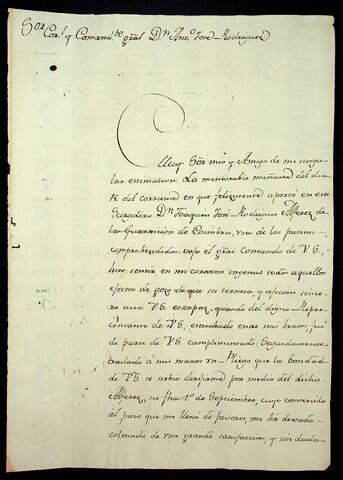 Sor
Corl. y Comante. gral Dn. Anto. Jose Rodriguez
Muy Sor. mio y Amigo de mi singu-
lar estimacion: La memorable mañana del dia
del corriente en que felizmente aportó en este
Surgidero Dn. Joaquin José Rodriguez Alferez de
la Guarnicion de Coimbra, vno de los puntos
comprehendidos vajo el gral Comando de V.S.,
hizo sentir en mi corazon ingenuo todos aquellos
efectos de gozo de que su ternura, y aficion since-
ra acia V.S. es capaz, quando del digno Repre-
sentante de V.S., estrechado entre mis brazos fui
de parte de V.S. cumplimentado: Seguidamente
trasladó á mis manos vn Pliego que la bondad
de V.S. se sirbio dirijirme por medio del dicho
Alferez, su fha 1o. de Septiembre, cuyo contenido
al paso que me llenó de favores, me ha dexado
colmado de vna grande satisfaccion, y sin duda